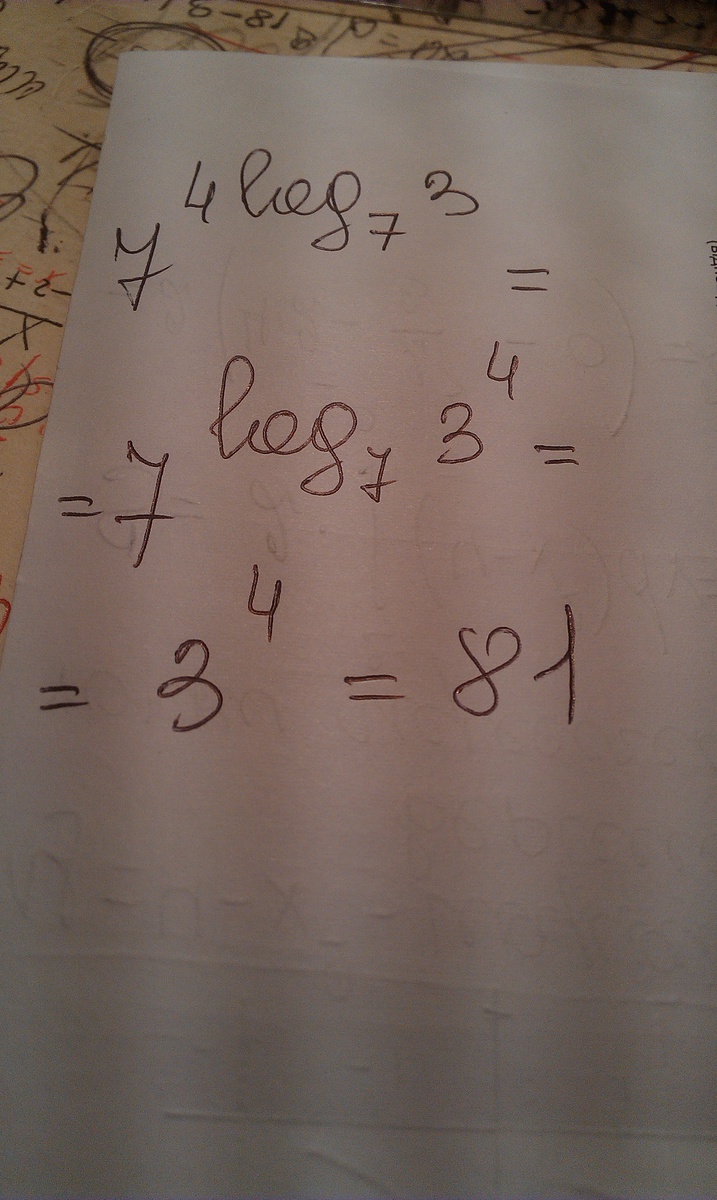 18-3
7^{4 log_7 3} =
= 7^{log_7 3^4} =
= 3^4 = 81